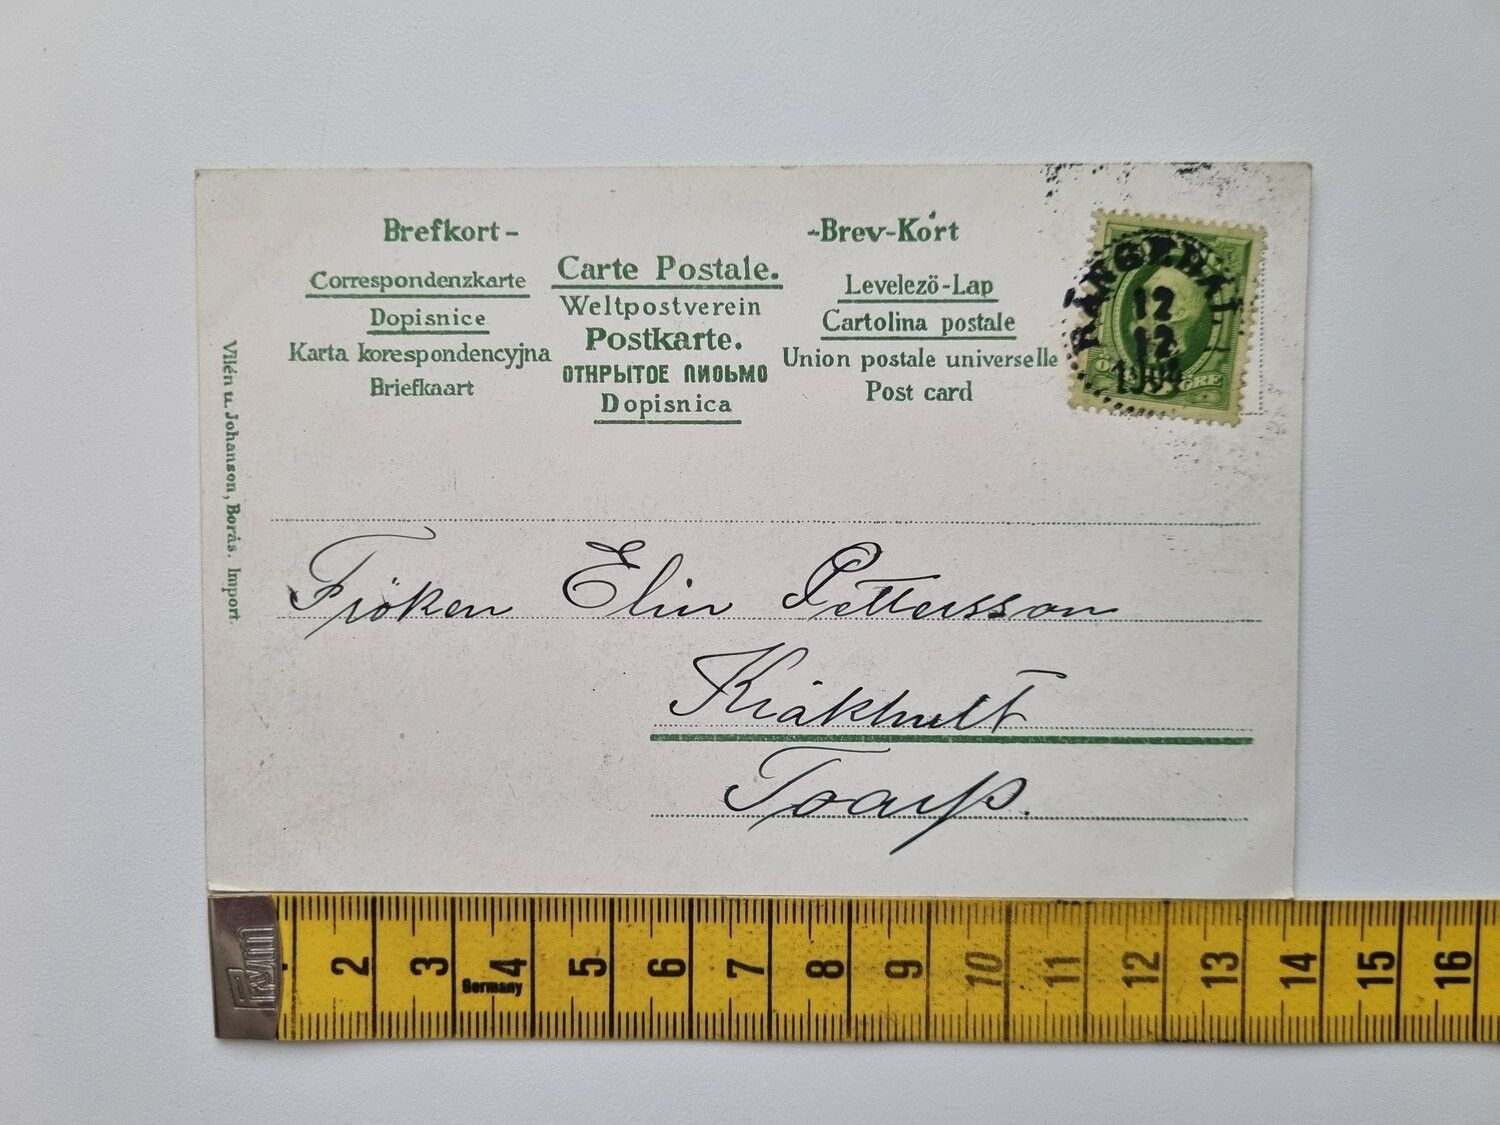 Brefkort -
-Brev-Kort
Correspondenzkarte
Dopisnice
Karta korespondencyjna
Briefkaart
Carte Postale.
Weltpostverein
Postkarte.
ОТКРЫТОЕ ПИСЬМО
Dopisnica
Levelezö-Lap
Cartolina postale
Union postale universelle
Post card
12
12
1904
ÖRE
Vilén u. Johanson, Borås. Import.
Fröken Elin Pettersson
Kråkhult
Toarp.
Prym
Germany
2 3 4 5 6 7 8 9 10 11 12 13 14 15 16